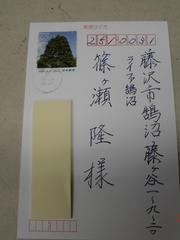 郵便はがき
251-0031
藤沢市鵠沼藤ヶ谷一-九-二〇
ライフ鵠沼
篠ヶ瀬 隆 様